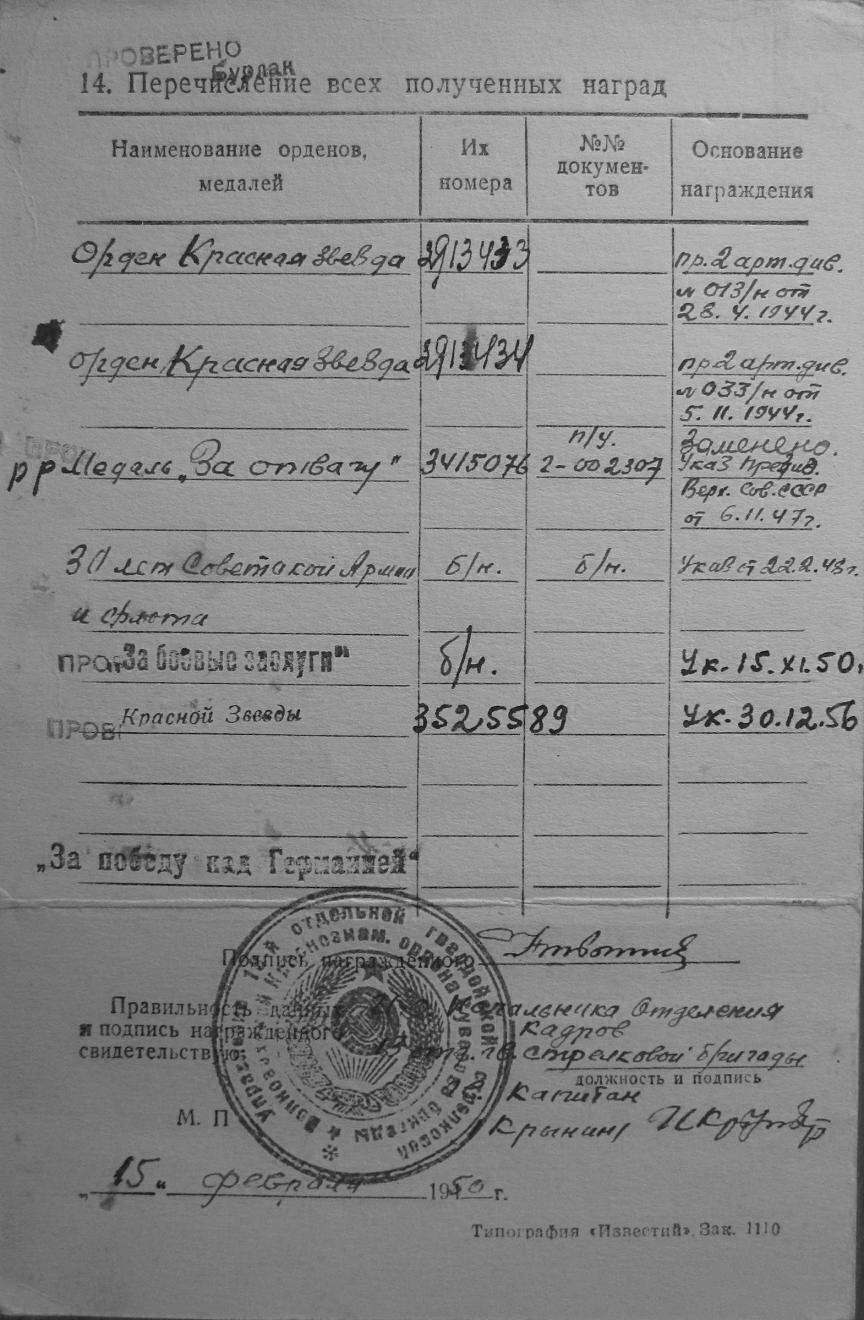 ПРОВЕРЕНО
Бурлак
14. Перечисление всех полученных наград
Наименование орденов, медалей
Их номера
№№ докумен-тов
Основание награждения
Орден Красная Звезда 2913433 пр. 2 арт. див.
№ 013/н от
28. 4. 1944 г.
орден Красная Звезда 2913434 пр 2 арт. див.
№ 033/н от
5. 11. 1944 г.
п/у. Заменено.
рр Медаль „За отвагу" 3415076 2-002307 Указ Презид.
Верх. Сов. СССР
от 6.11.47 г.
30 лет Советской Армии б/н. б/н. Указ от 22.2.48 г.
и флота
ПРО „За боевые заслуги" б/н. Ук. 15. XI. 50.
ПРОВ Красной Звезды 3525589 Ук. 30.12.56
„За победу над Германией"
Подпись награжденного
Правильность данных Начальника Отделения
и подпись награжденного Кадров
свидетельствую: отд. гв. стрелковой бригады
должность и подпись
Капитан
М. П Крынин
„15" февраля 1950 г.
отдельной гвардейской стрелковой
Краснознам. ордена Суворова бригады
Типография «Известий». Зак. 1110